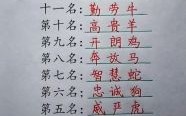 十一名：勤劳牛
第十名：高贵羊
第九名：开朗鸡
第八名：奔放马
第七名：智慧蛇
第六名：忠诚狗
第五名：威严虎